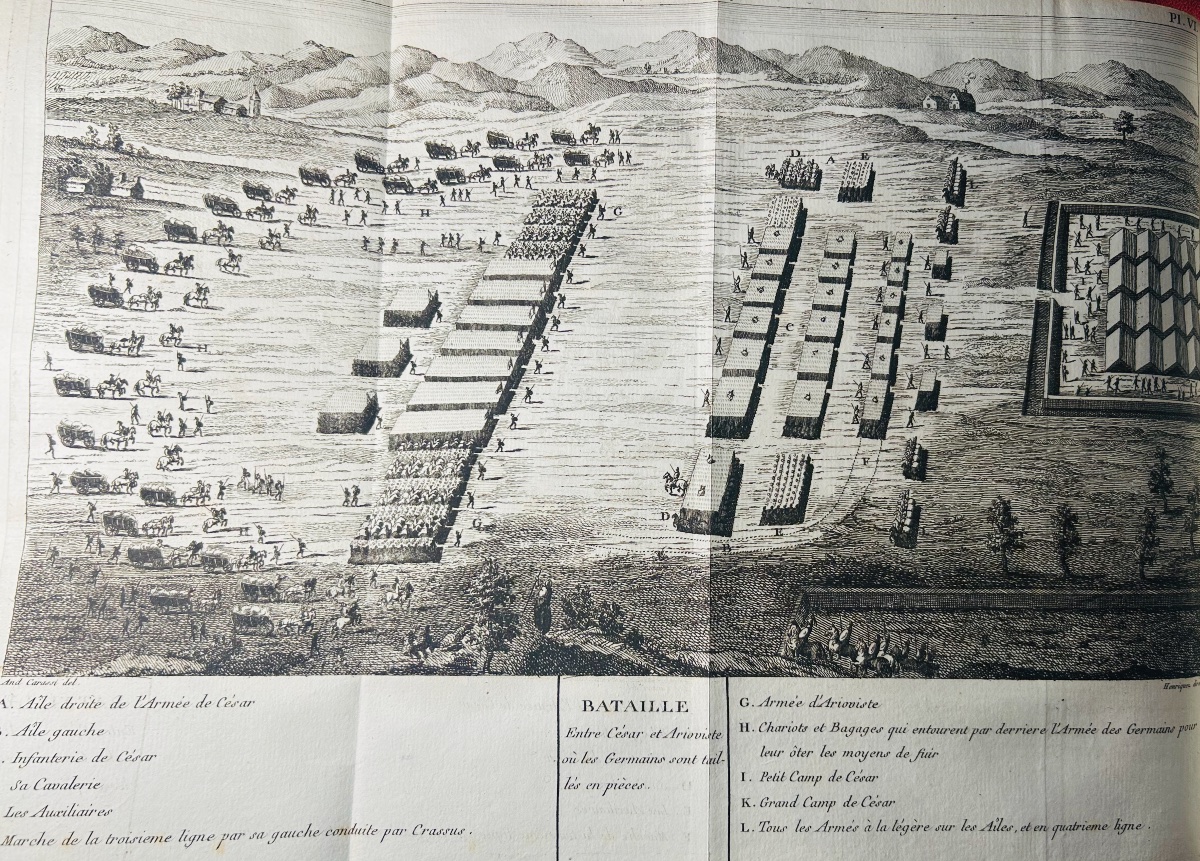 Pl. VI
D
A
E
G
H
C
H
F
D
G
E
B
And Carassi del.
Henriquez
A. Aile droite de l'Armée de César
. Aîle gauche
. Infanterie de César
Sa Cavalerie
Les Auxiliaires
Marche de la troisieme ligne par sa gauche conduite par Crassus.
BATAILLE
Entre César et Arioviste
où les Germains sont tail-
lés en pièces.
G. Armée d'Arioviste
H. Chariots et Bagages qui entourent par derriere l'Armée des Germains pour
leur ôter les moyens de fuir
I. Petit Camp de César
K. Grand Camp de César
L. Tous les Armés à la légère sur les Aîles, et en quatrieme ligne.